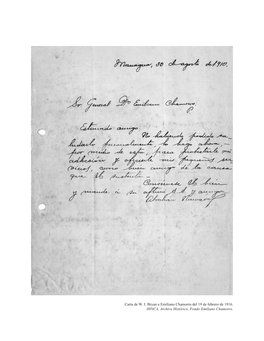 Managua, 30 de agosto de 1910.
Sr. General Dn. Emiliano Chamorro
Estimado amigo:
No habiendo podido sa-
ludarlo personalmente, lo hago ahora,
por medio de esta, para protestarle mi
adhesión y ofrecerle mis pequeños ser-
vicios, como buen amigo de la causa
que Ud. sustenta.
Consérvese Ud. bien
y mande a su affmo. S.S. y amigo
Carta de W. J. Bryan a Emiliano Chamorro del 19 de febrero de 1916.
IHNCA. Archivo Histórico, Fondo Emiliano Chamorro.